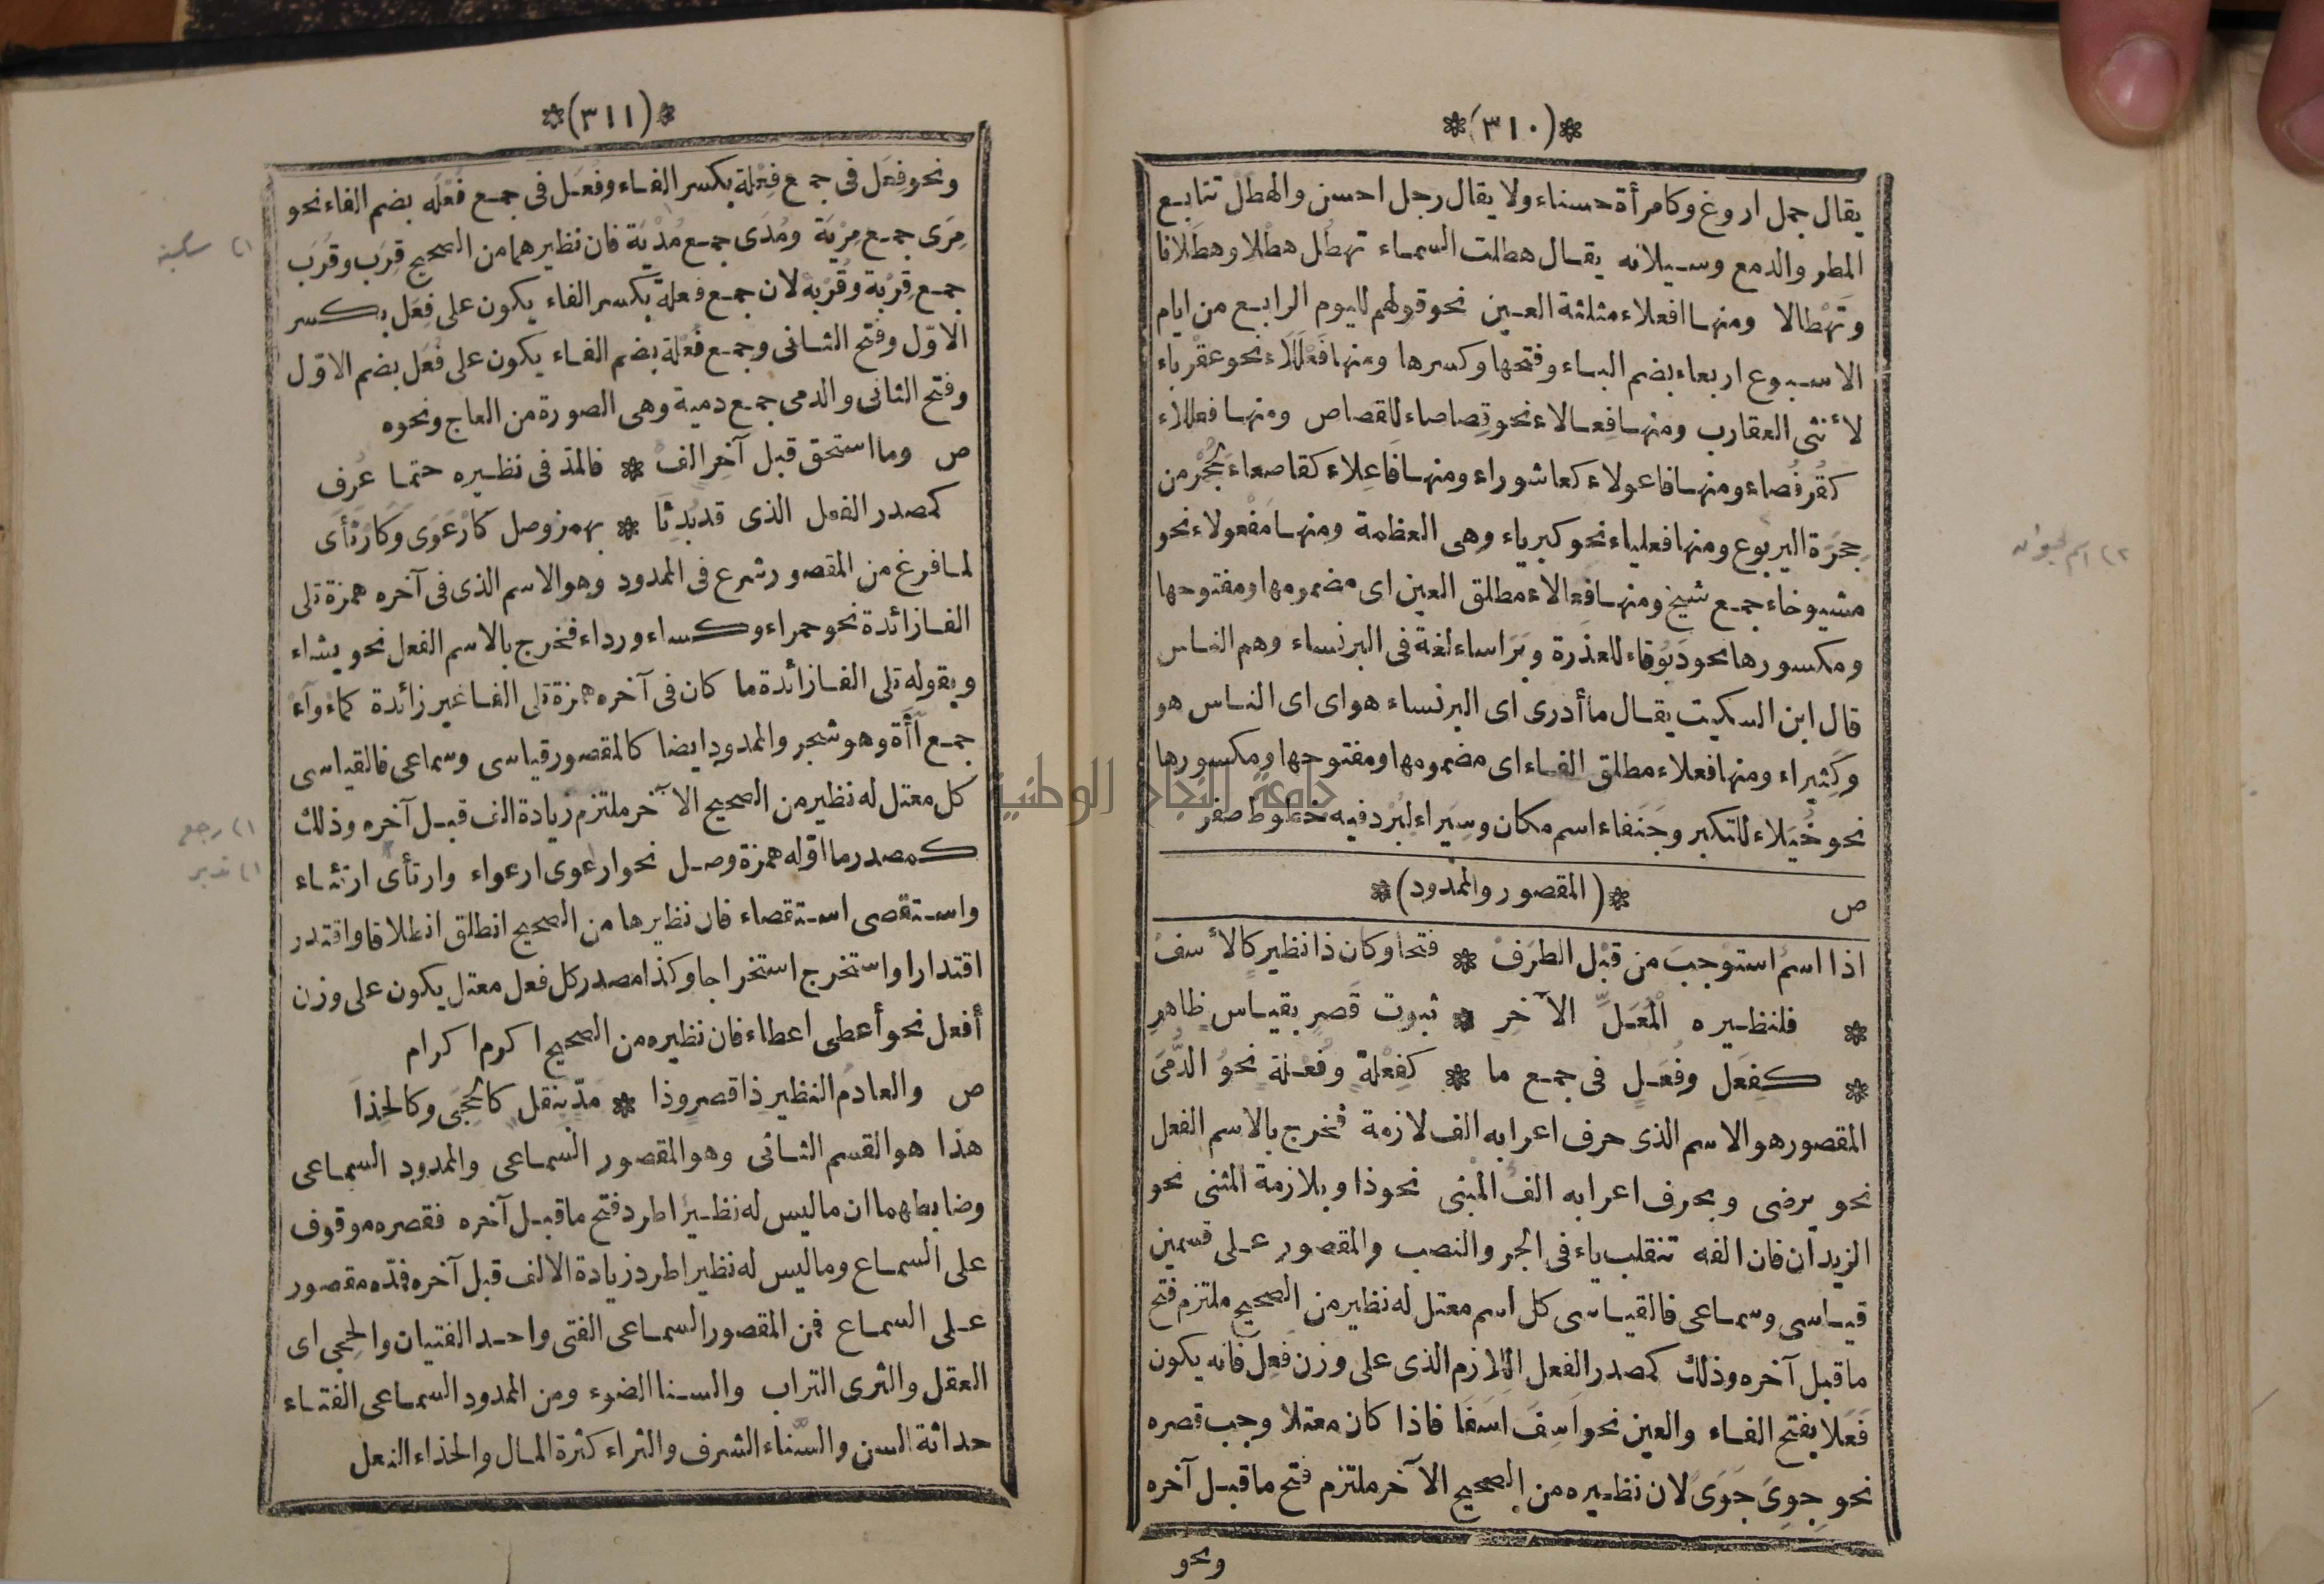 *(٣١٠)*
يقال جمل اروغ وكامرأة حسناء ولا يقال رجل احسن والهطل تتابع
المطر والدمع وسيلانه يقال هطلت السماء تهطل هطلا وهطلانا
وتهطالا ومنها افعلاء مثلثة العين نحو قولهم لليوم الرابع من ايام
الاسبوع اربعاء بضم الباء وفتحها وكسرها ومنها فَعْلَلاء نحو عقرباء
لأنثى العقارب ومنها فِعالاء نحو قِصاصاء للقصاص ومنها فعللاء
كقُرفُصاء ومنها فاعولاء كعاشوراء ومنها فاعِلاء كقاصعاء لجُحْر من
جِحَرَة اليربوع ومنها فعلياء نحو كبرياء وهى العظمة ومنها مَفْعولاء نحو
مشيوخاء جمع شيخ ومنها فَعالاء مطلق العين اى مضمومها ومفتوحها
ومكسورها نحو دَبُوقاء للعذرة وبَرَاساء لغة فى البرنساء وهم الناس
قال ابن السكيت يقال ما أدرى اى البرنساء هو اى اى الناس هو
وكَثِيراء ومنها فعلاء مطلق الفاء اى مضمومها ومفتوحها ومكسورها
نحو خُيَلاء للتكبر وجَنَفاء اسم مكان وسِيَراء لبُرْد فيه خطوط صفر
ص *(المقصور والممدود)*
اذا اسمٌ استوجبَ من قبْل الطرَفْ * فتحا وكان ذا نظير كالأسفْ
* فلنظيره المُعَلِّ الآخرِ * ثبوت قَصرٍ بقياس ظاهرِ
* كفِعَل وفُعَلٍ فى جمع ما * كفِعْلةٍ وفُعْلة نحوُ الدُّمَى
المقصور هو الاسم الذى حرف اعرابه الف لازمة فخرج بالاسم الفعل
نحو يرضى وبحرف اعرابه الفُ المبنى نحو ذا وبلازمة المثنى نحو
الزيدان فان الفه تنقلب ياء فى الجر والنصب والمقصور على قسمين
قياسى وسماعى فالقياسى كل اسم معتل له نظير من الصحيح ملتزم فتح
ما قبل آخره وذلك كمصدر الفعل اللازم الذى على وزن فَعِل فانه يكون
فَعَلا بفتح الفاء والعين نحو اسِفَ اسَفَا فاذا كان معتلا وجب قصره
نحو جِوِىَ جَوَىً لان نظيره من الصحيح الآخر ملتزم فتح ما قبل آخره
ونحو
٢) اسم لحيوان
*(٣١١)*
ونحو فِعَل فى جمع فِعْلة بكسر الفاء وفُعَل فى جمع فُعْلَة بضم الفاء نحو
مِرَى جمع مِرْيَة ومُدَى جمع مُدْيَة فان نظيرهما من الصحيح قِرَب وقُرَب
جمع قِرْبة وقُرْبة لان جمع فعلة بكسر الفاء يكون على فِعَل بكسر
الاوّل وفتح الثانى وجمع فُعْلة بضم الفاء يكون على فُعَل بضم الاوّل
وفتح الثانى والدمى جمع دمية وهى الصورة من العاج ونحوه
ص وما استحق قبل آخرٍ الفْ * فالمدّ فى نظيره حتما عُرِفْ
كمصدر الفعل الذى قد بُدِئا * بهمز وصل كارْعَوَى وكارْتأى
لما فرغ من المقصور شرع فى الممدود وهو الاسم الذى فى آخره همزة تلى
الفا زائدة نحو حمراء وكساء ورداء فخرج بالاسم الفعل نحو يشاء
وبقوله تلى الفا زائدة ما كان فى آخره همزة تلى الفا غير زائدة كماء وآء
جمع آأة وهو شجر والممدود ايضا كالمقصور قياسى وسماعى فالقياسى
كل معتل له نظير من الصحيح الآخر ملتزم زيادة الف قبل آخره وذلك
كمصدر ما اوّله همزة وصل نحو ارعوى ارعواء وارتأى ارتئاء
واستقصى استقصاء فان نظيرها من الصحيح انطلق انطلاقا واقتدر
اقتدارا واستخرج استخراجا وكذا مصدر كل فعل معتل يكون على وزن
أفعل نحو أعطى اعطاء فان نظيره من الصحيح اكرم اكرام
ص والعادمُ النظير ذا قصرٍ وذا * مدّ بنقل كالحِجَى وكالحِذا
هذا هو القسم الثانى وهو المقصور السماعى والممدود السماعى
وضابطهما ان ما ليس له نظير اطرد فتح ما قبل آخره فقصره موقوف
على السماع وما ليس له نظير اطرد زيادة الالف قبل آخره فمدّه مقصور
على السماع فمن المقصور السماعى الفتى واحد الفتيان والحِجى اى
العقل والثرى التراب والسنا الضوء ومن الممدود السماعى الفتاء
حداثة السن والسَّناء الشرف والثراء كثرة المال والحذاء النعل
١) سكينة
١) رجع
١) تدبر
جامعة النجاح الوطنية